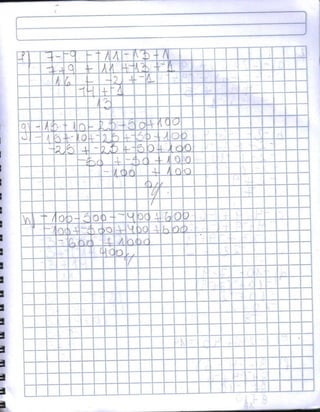 f) 7--9-+11-13+-1
7+9 + -11 +-13 +-1
16 + -2 +-1
14 +-1
13
g) -15-10-25-50+100
-15+-10+-25+-50+100
-25 +-25+-50+100
-50 +-50+100
-100 +100
0//
h) -100-500--400+600
-100+-500+400+600
-600 +1000
400//